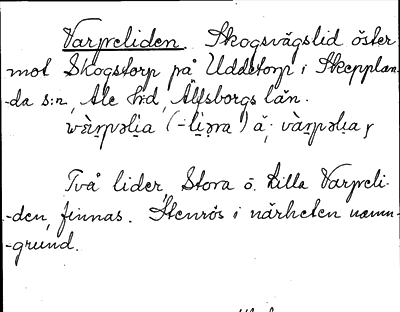 Varpeliden. Skogsvägslid öster
mot Skogstorp på Uddetorp i Skepplan-
-da s:n, Ale h:d, Älfsborgs län.
Två lider, Stora o. Lilla Varpeli-
-den, finnas. Stenrös i närheten
-grund.